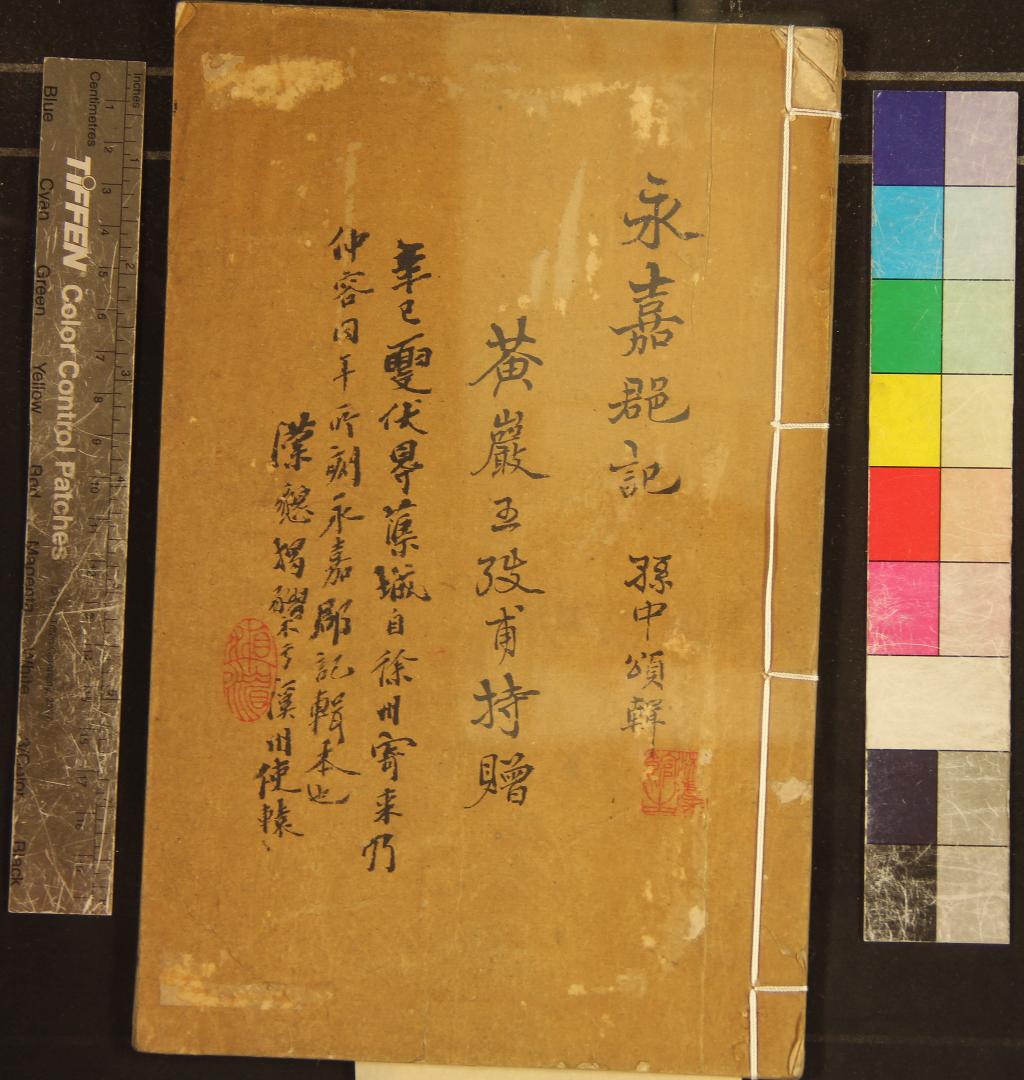 永嘉郡記 孫中頌輯
黃巖王弢甫持贈
辛巳夏伏城自徐州寄來乃
仲容同年所刻永嘉郡記輯本也
揭櫫于漢州使轅
Inches
Centimetres
TIFFEN Color Control Patches
Blue Cyan Green Yellow Red Magenta White 3/Color Black